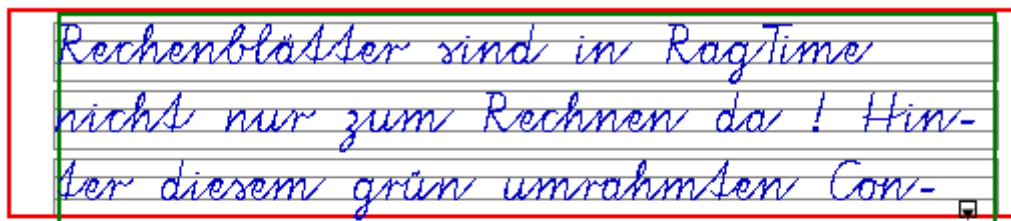 Rechenblätter sind in RagTime
nicht nur zum Rechnen da ! Hin-
ter diesem grün umrahmten Con-